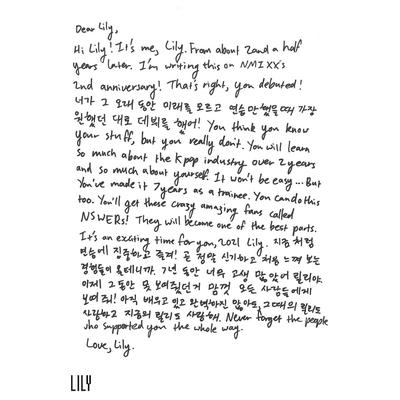 Dear Lily,
Hi Lily! It's me, Lily. From about 2 and a half
years later. I'm writing this on NMIXX's
2nd anniversary! That's right, you debuted!
너가 그 오래 동안 미래를 모르고 연습만 했을때 가장
원했던 대로 데뷔를 했어! You think you know
your stuff, but you really don't. You will learn
so much about the Kpop industry over 2 years
and so much about yourself. It won't be easy... But
You've made it 7 years as a trainee. You can do this
too. You'll get these crazy amazing fans called
NSWERs! They will become one of the best parts.
It's an exciting time for you, 2021 Lily. 지금 처럼
연습에 집중하고 즐겨! 곧 정말 신기하고 처음 느껴 보는
경험들이 올테니까. 7년 동안 너무 고생 많았어 릴리야.
이제 그동안 못 보여줬던거 맘껏 모든 사람들에게
보여줘! 아직 배우고 있고 완벽하진 않아도, 그때의 릴리도
사랑하고 지금의 릴리도 사랑해. Never forget the people
who supported you the whole way.
Love, Lily.
LILY